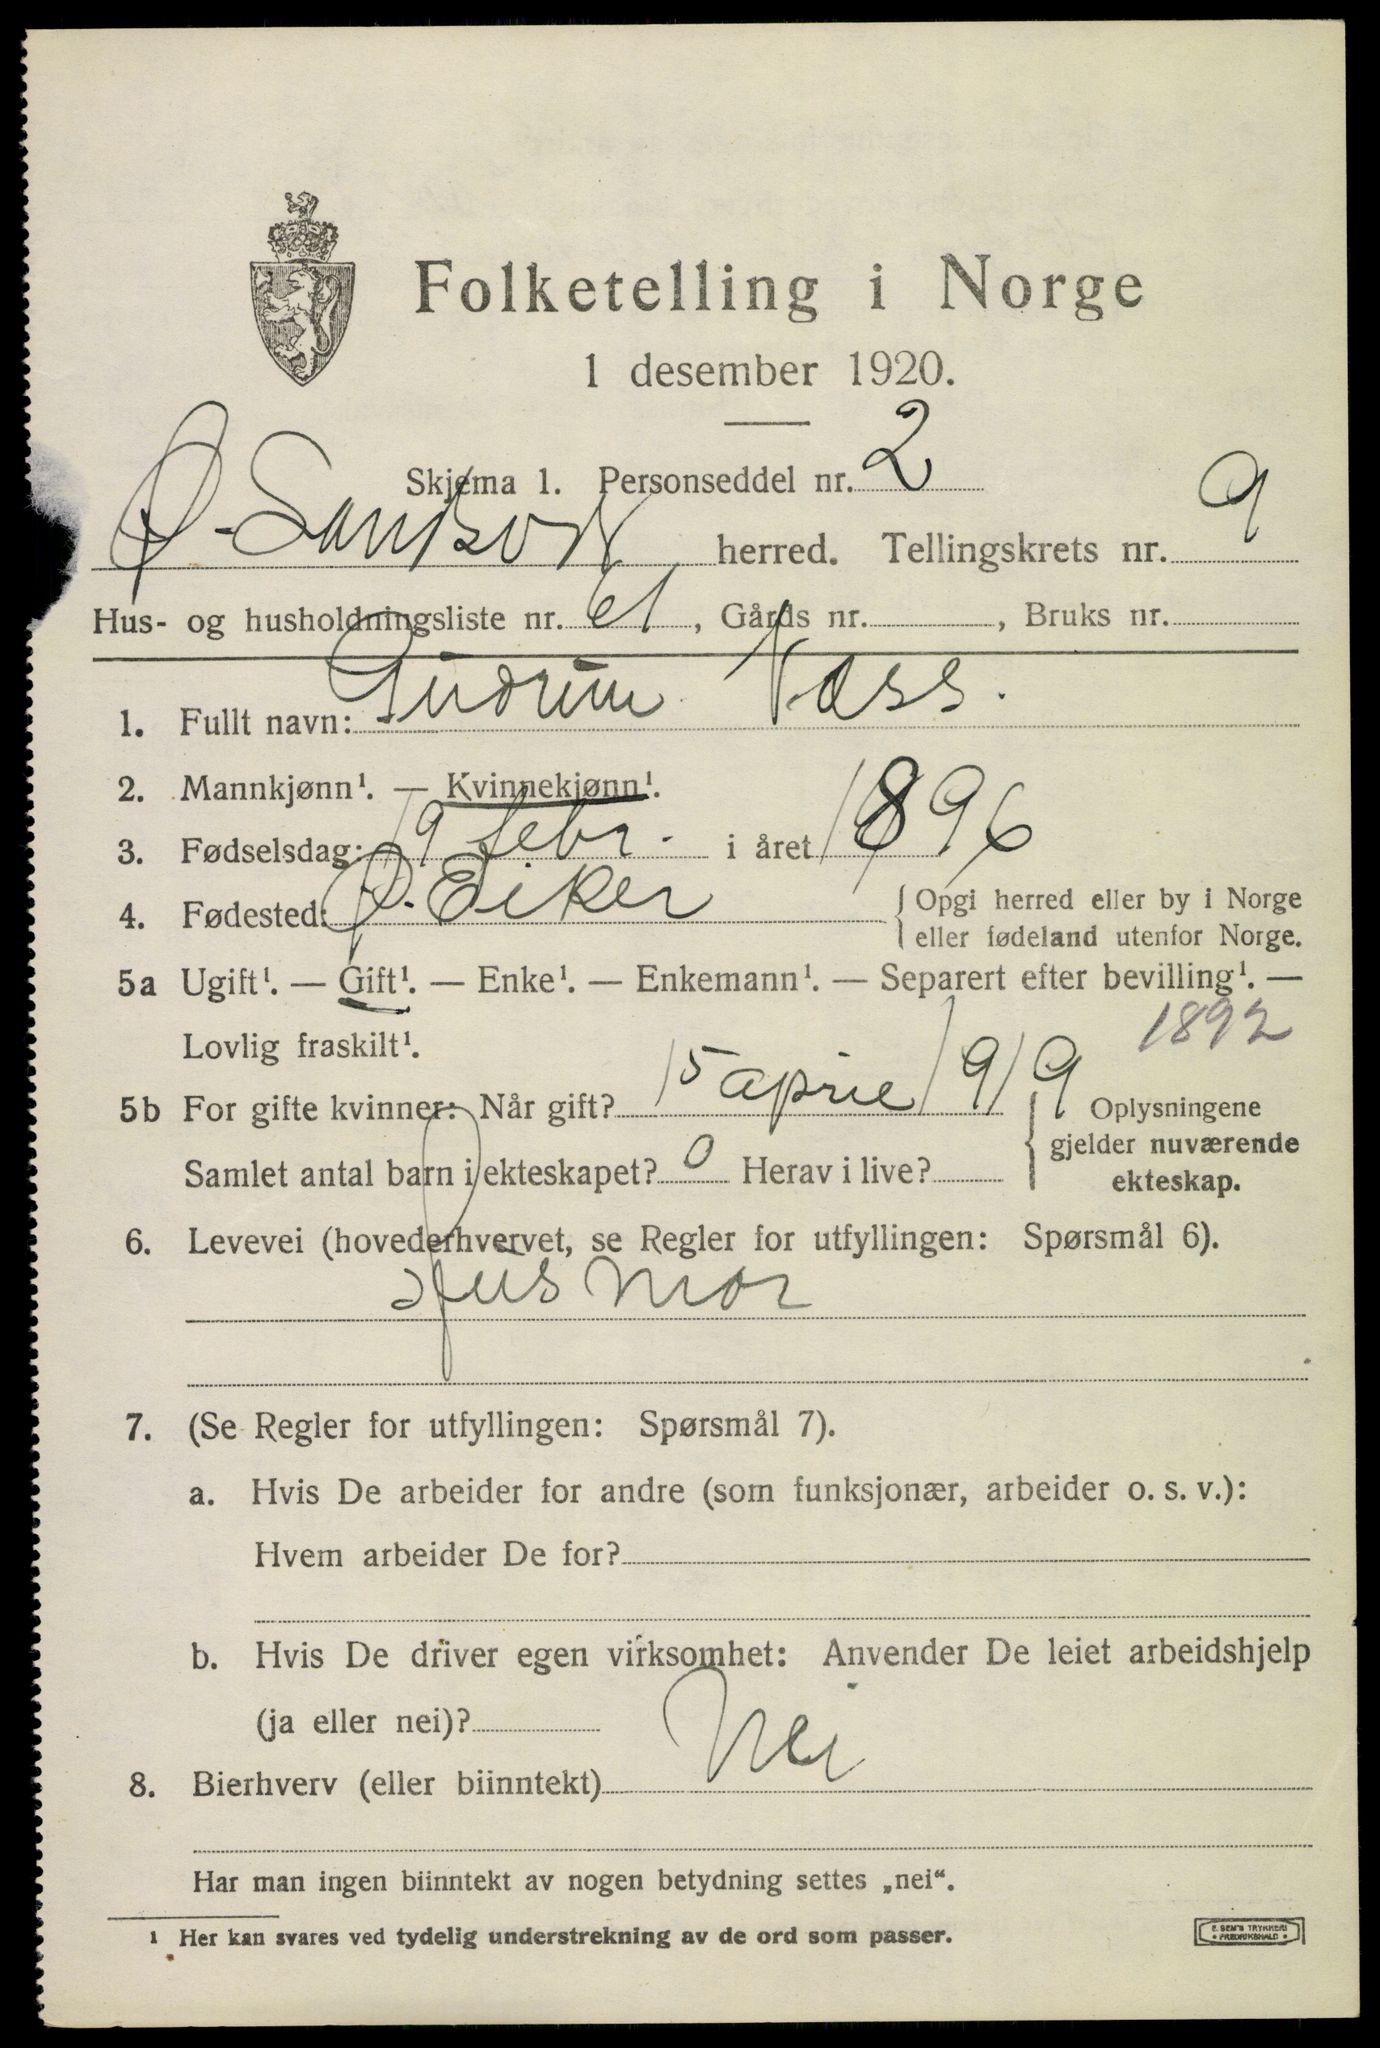 Folketelling i Norge
1 desember 1920.
Skjema 1. Personseddel nr. 2
Ø. Sandsvær herred. Tellingskrets nr. 9
Hus- og husholdningsliste nr. 61, Gårds nr. , Bruks nr.
1. Fullt navn: Gudrun Vass.
2. Mannkjønn¹. — Kvinnekjønn¹.
3. Fødselsdag: 19 febr. i året 1896
4. Fødested: Ø. Eiker { Opgi herred eller by i Norge
eller fødeland utenfor Norge.
5a Ugift¹. — Gift¹. — Enke¹. — Enkemann¹. — Separert efter bevilling¹. —
Lovlig fraskilt¹. 1892
5b For gifte kvinner: Når gift? 15 april 1919 { Oplysningene
gjelder nuværende
Samlet antal barn i ekteskapet? 0 Herav i live? ekteskap.
6. Levevei (hovederhvervet, se Regler for utfyllingen: Spørsmål 6).
Husmor
7. (Se Regler for utfyllingen: Spørsmål 7).
a. Hvis De arbeider for andre (som funksjonær, arbeider o. s. v.):
Hvem arbeider De for?
b. Hvis De driver egen virksomhet: Anvender De leiet arbeidshjelp
(ja eller nei)?
8. Bierhverv (eller biinntekt) Nei
Har man ingen biinntekt av nogen betydning settes „nei“.
¹ Her kan svares ved tydelig understrekning av de ord som passer.
E. SEM'S TRYKKERI
• FREDRIKSHALD •